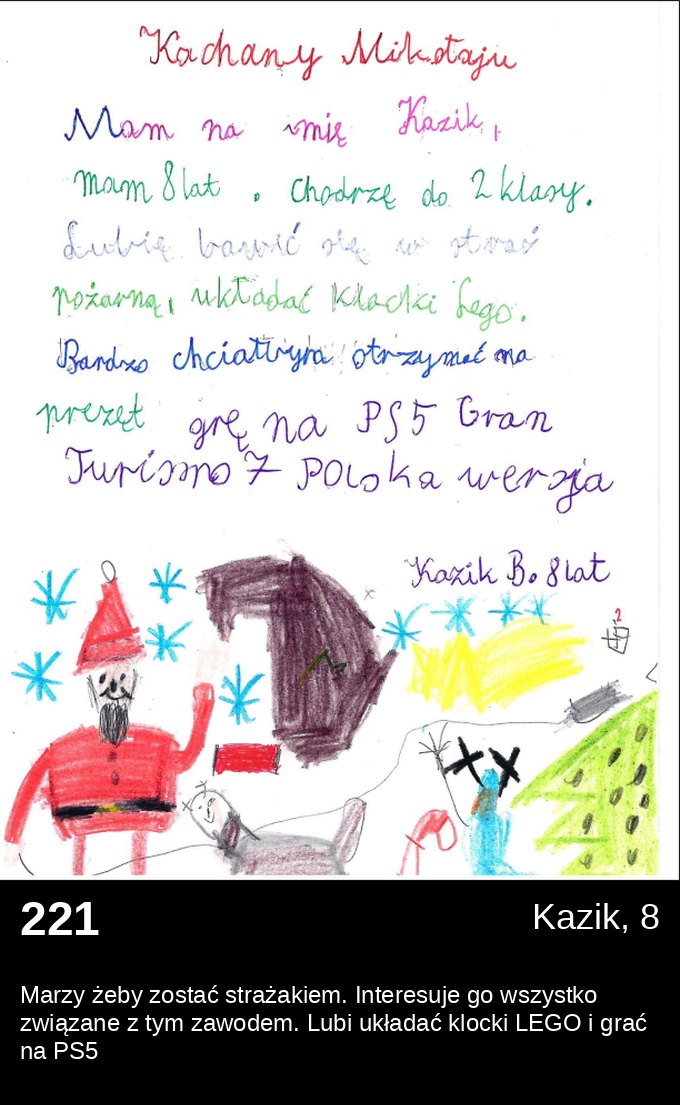 Kachany Mikołaju
Mam na imię Kazik,
mam 8 lat . Chodrzę do 2 klasy.
Lubię bawić się w straż
pożarną, układać klocki Lego.
Bardzo chciałbym otrzymać na
prezęt grę na PS5 Gran
Turismo 7 POLska wersja
Kazik B. 8 lat
2
221
Kazik, 8
Marzy żeby zostać strażakiem. Interesuje go wszystko
związane z tym zawodem. Lubi układać klocki LEGO i grać
na PS5